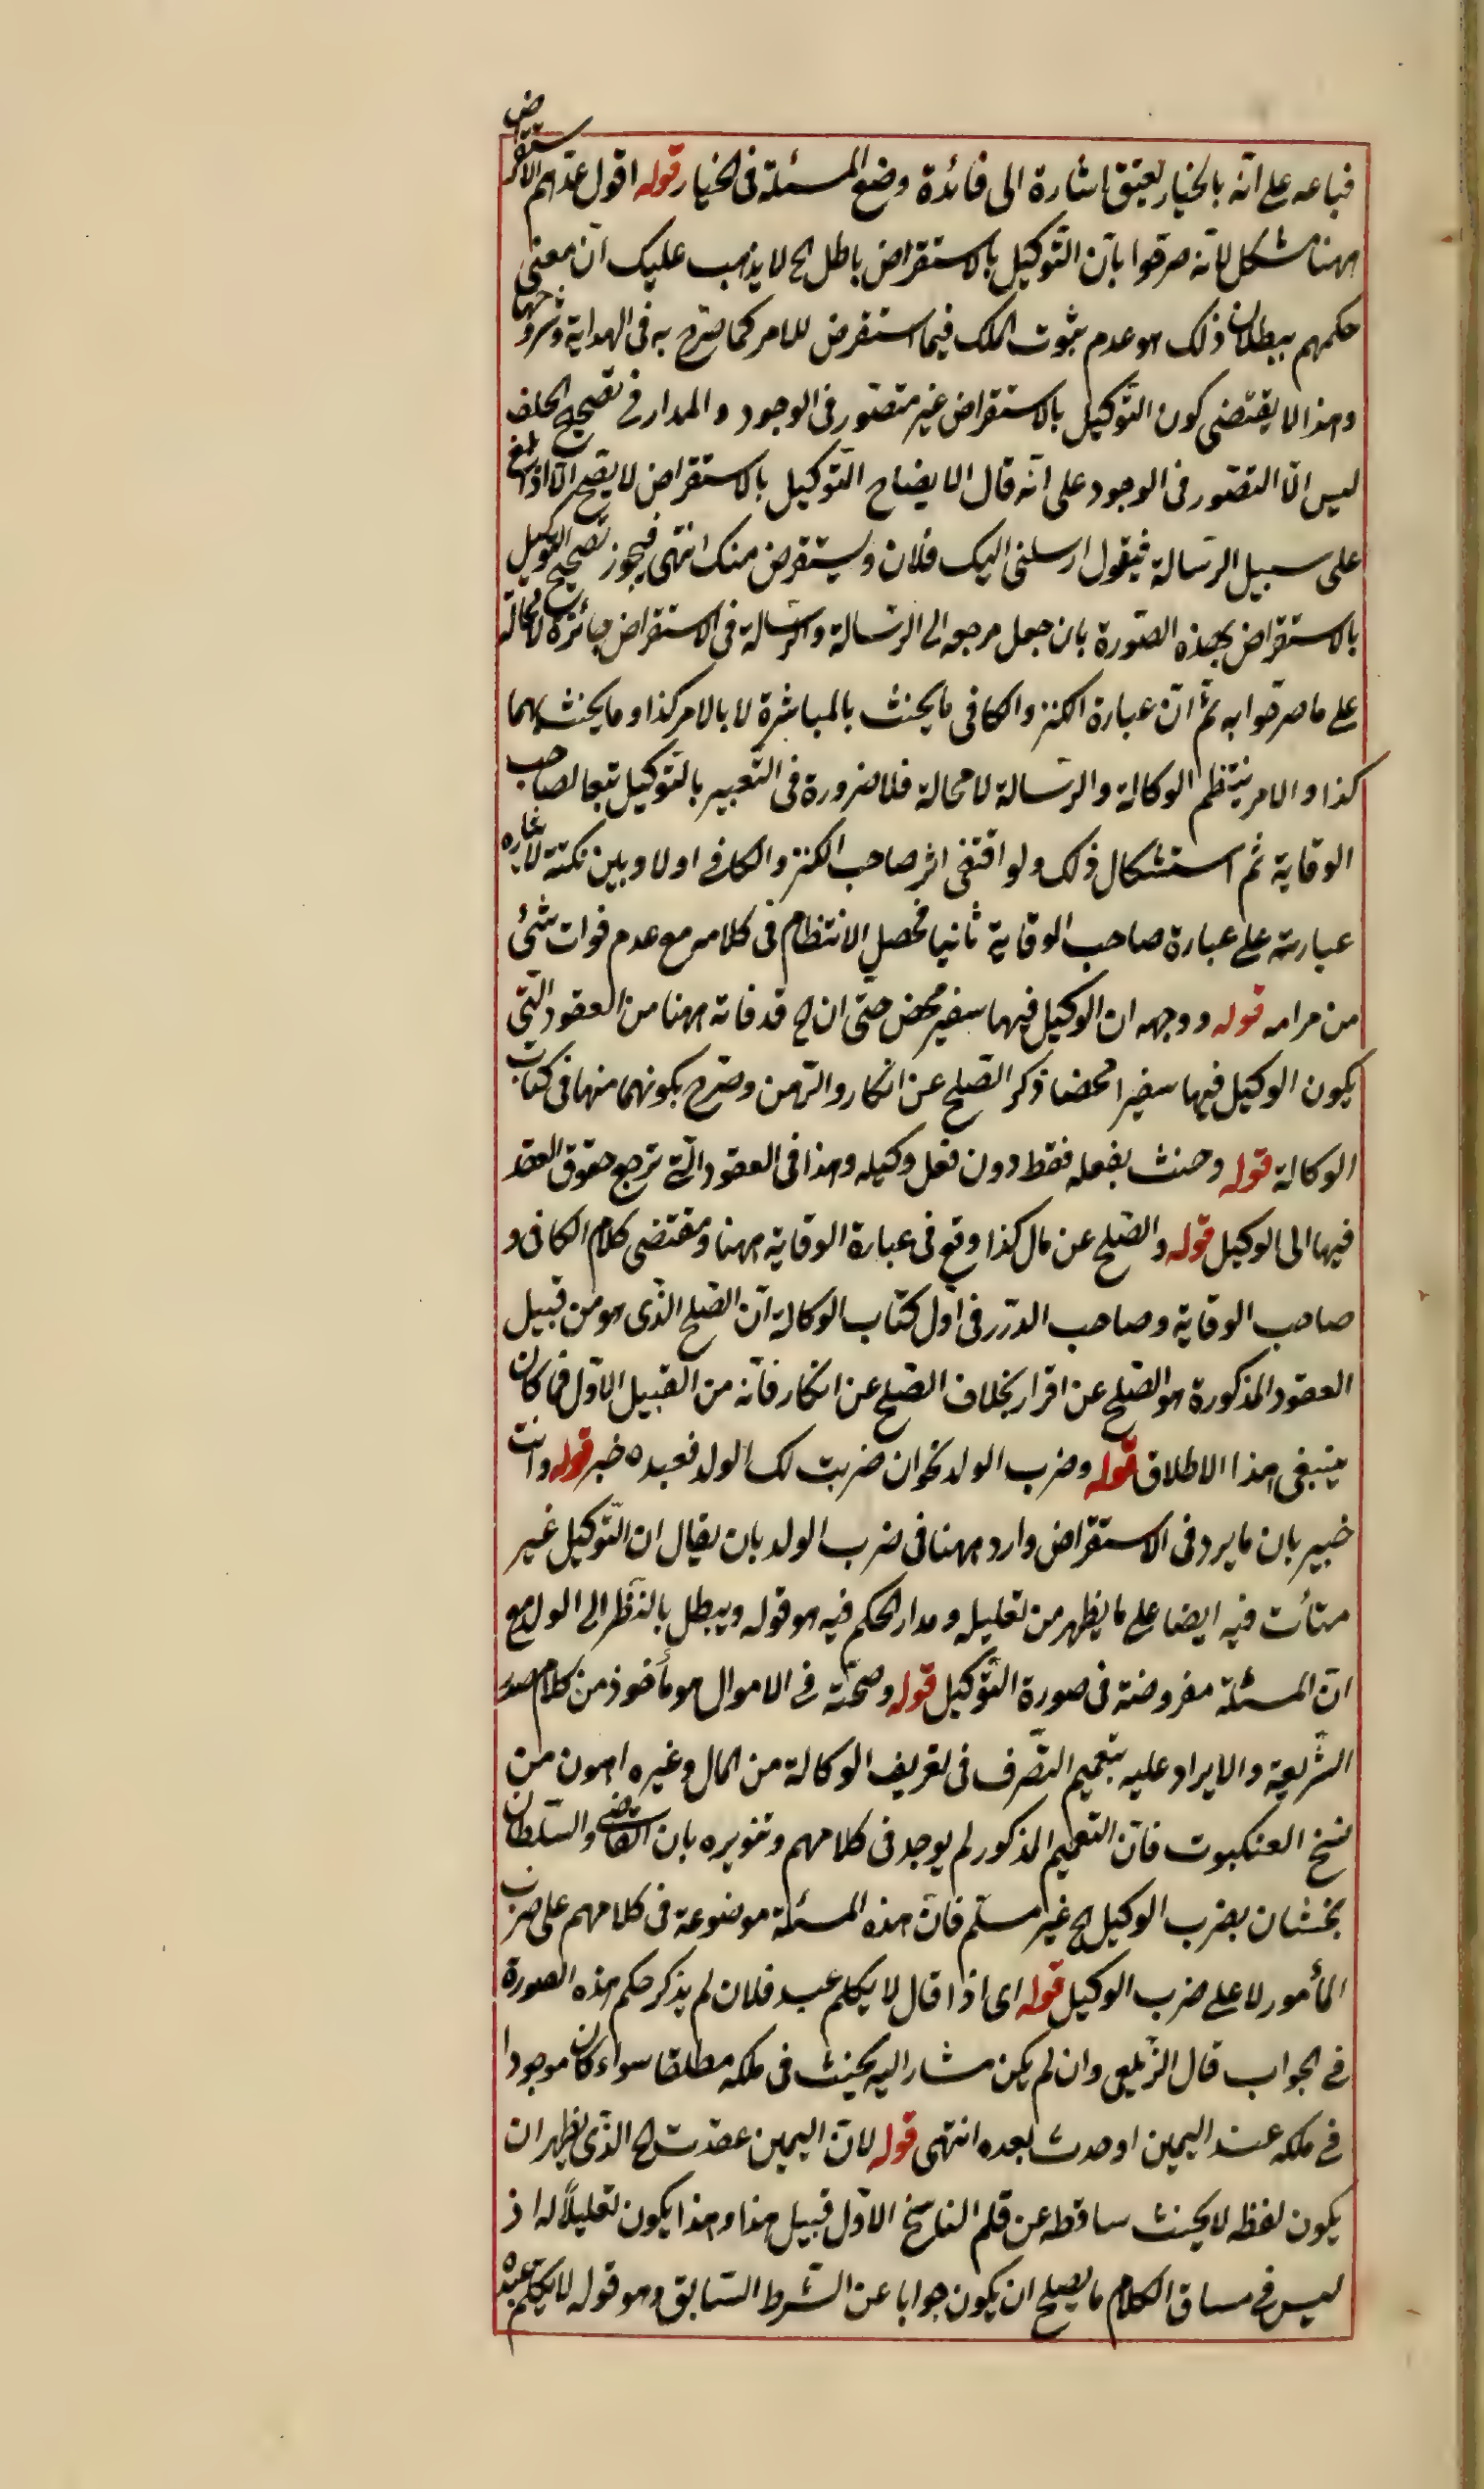 فباعه على انّه بالخيار يعتق اشارة الى فائدة وضع المسئلة فى الخيار قوله اقول عدّهم الاستقراض
ههنا مشكل لانّه صرّحوا بانّ التّوكيل بالاستقراض باطل الخ لا يذهب عليك انّ معنى
حكمهم ببطلان ذلك هو عدم ثبوت الملك فيما استقرض للامر كما صرّح به فى الهداية وشروحها
وهذا لا يقتضى كون التّوكيل بالاستقراض غير متصّور فى الوجود والمدار فى تصحيح الحلف
ليس الّا التصّور فى الوجود على انّه قال الايضاح التّوكيل بالاستقراض لا يصّح الّا اذا بلغ
على سبيل الرّسالة فيقول ارسلنى اليك فلان ويستقرض منك انتهى فيجوز تصحيح التّوكيل
بالاستقراض بهذه الصّورة بان جعل مرجعه الى الرّسالة والرّسالة فى الاستقراض جائزة لا محالة
على ما صرّحوا به ثمّ انّ عبارة الكنز والكافى ما يحنث بالمباشرة لا بالامر كذا وما يحنث بهما
كذا والامر ينتظم الوكالة والرّسالة لا محالة فلا ضرورة فى التّعبير بالتّوكيل تبعا لصاحب
الوقاية ثم استشكال ذلك ولو اقتفى اثر صاحب الكنز والكافى اولا وبين نكتة لايثاره
عبارته على عبارة صاحب الوقاية ثانيا فحصل الانتظام فى كلامه مع عدم فوات شئ
من مرامه قوله ووجهه ان الوكيل فيهما سفير محض حتى ان الخ قد فاته ههنا من العقود الّتى
يكون الوكيل فيها سفيرا محضا ذكر الصّلح عن انكار والرّهن وصّرح بكونهما منها فى كتاب
الوكالة قوله وحنث بفعله فقط دون فعل وكيله وهذا فى العقود الّتى ترجع حقوق العقد
فيها الى الوكيل قوله والصّلح عن مال كذا وقع فى عبارة الوقاية ههنا ومقتضى كلام الكافى و
صاحب الوقاية وصاحب الدّرر فى اوّل كتاب الوكالة انّ الصّلح الّذى هو من قبيل
العقود المذكورة هو الصّلح عن اقرار بخلاف الصّلح عن انكار فانّه من القبيل الاوّل فما كان
ينبغى هذا الاطلاق قوله وضرب الولد نحو ان ضربت لك الولد فعبده خبر قوله وانت
خبير بان ما يرد فى الاستقراض وارد ههنا فى ضرب الولد بان يقال ان التّوكيل غير
متأت فيه ايضا على ما يظهر من تعليله ومدار الحكم فيه هو قوله ويبطل بالنّظر الى الولد مع
انّ المسئلة مفروضة فى صورة التّوكيل قوله وصحّته فى الاموال هو مأخوذ من كلام صدر
الشّريعة والايراد عليه بتعميم التّصّرف فى تعريف الوكالة من المال وغيره اهون من
نسخ العنكبوت فانّ التعميم المذكور لم يوجد فى كلامهم وتنويره بان القاضى والسّلطان
يحنثان بضرب الوكيل الخ غير مسلّم فانّ هذه المسئلة موضوعة فى كلامهم على ضرب
المأمور لا على ضرب الوكيل قوله اى اذا قال لا يكلم عبد فلان لم يذكر حكم هذه الصورة
فى الجواب قال الزّيلعى وان لم يكن مشار اليه يحنث فى ملكه مطلقا سواء كان موجودا
فى ملكه عند اليمين او حدث بعده انتهى قوله لانّ اليمين عقدت الخ الّذى يظهر ان
يكون لفظه لا يحنث ساقطه عن قلم النّاسخ الاوّل قبيل هذا وهذا يكون تعليلًا له اذ
ليس فى مساق الكلام ما يصلح ان يكون جوابا عن الشّرط السّابق وهو قوله لا يكلّم عبده